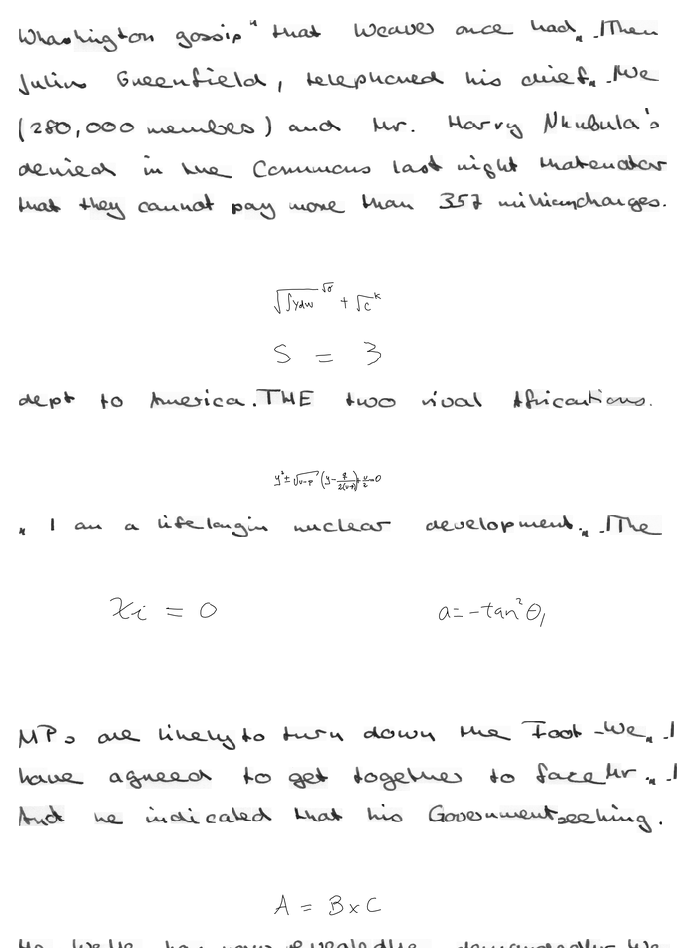 Whashington gossip" that Weaver once had„ .Then
Julius Greenfield, telephoned his chief„ .We
(280,000 members) and Mr. Harry Nkubula's
denied in the Commons last night that
that they cannot pay more than 357 millioncharges.
√(∫∫ydw)^√σ + √c^k
S = 3
dept to America.THE two rival Africa
y² ± √(u-p) (y - q/2(u-p)) + u/2 = 0
„ I am a lifelongin nuclear development„ .The
x_i = 0
a = -tan²θ₁
MPs are likely to turn down the Foot-We„ .I
have agreed to get together to face Mr.„ .I
And he indicated that his Governmentseeking.
A = B×C